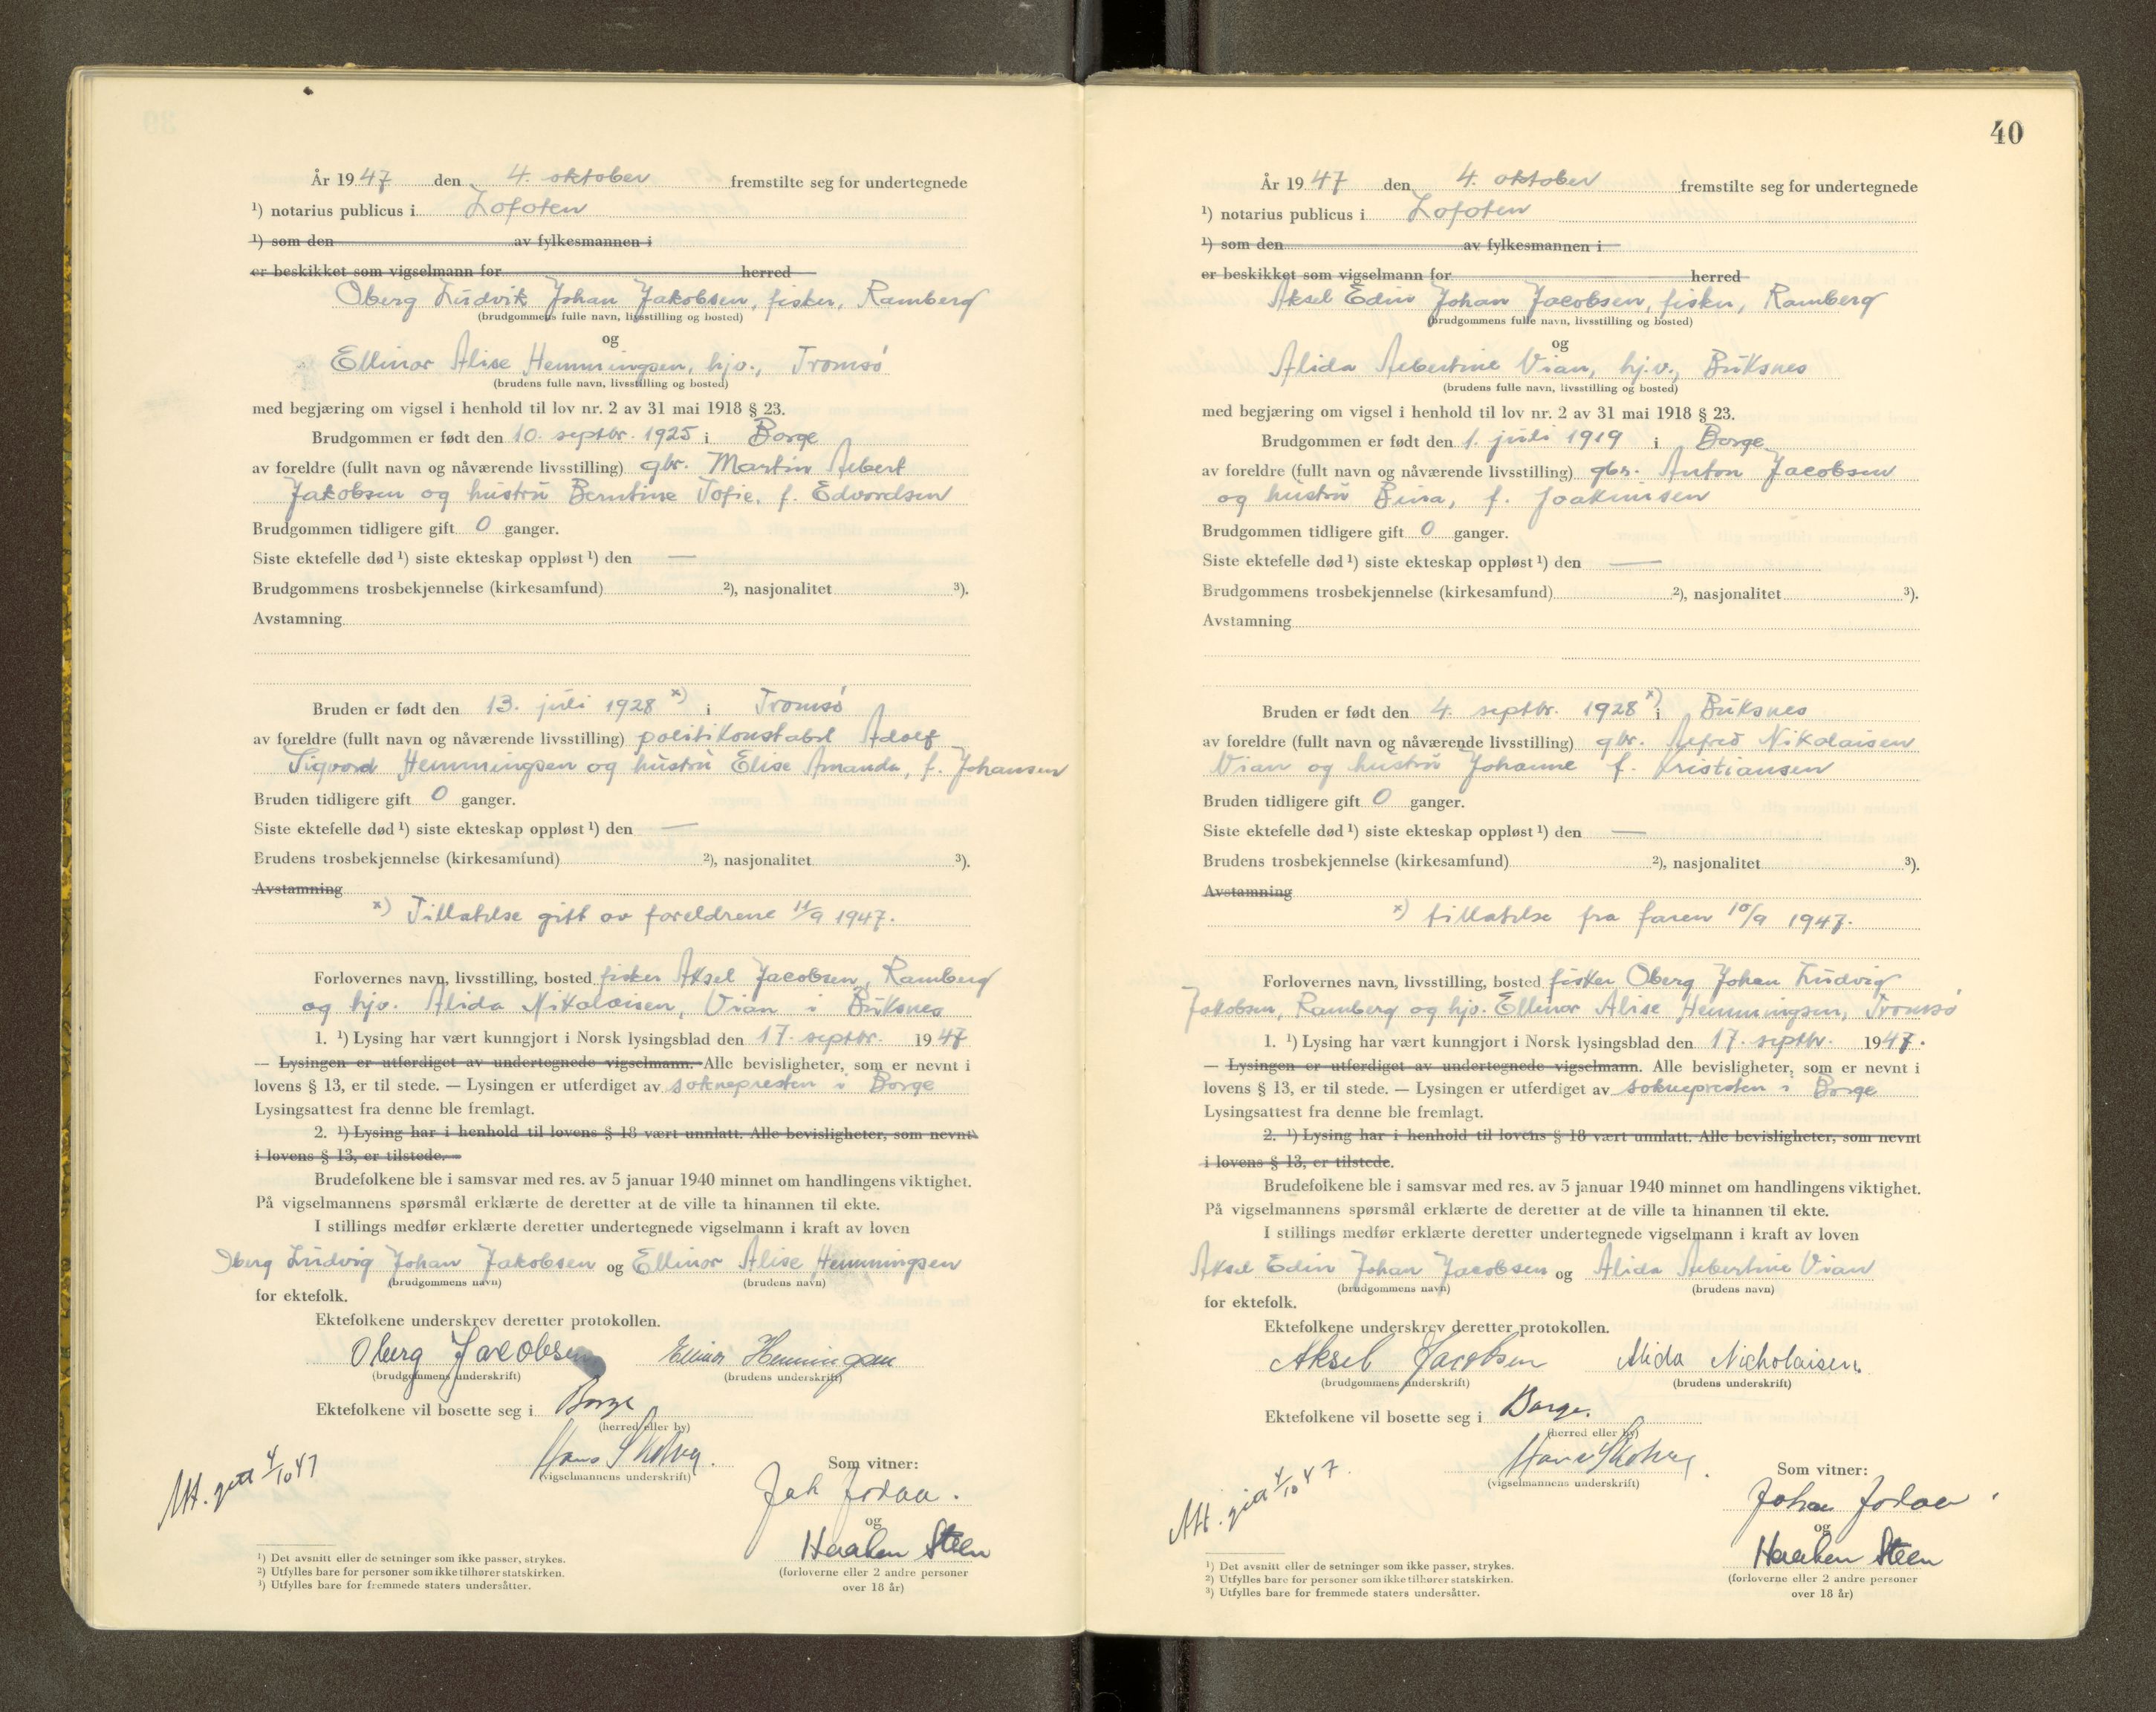 År 1947 den 4. oktober fremstilte seg for undertegnede
¹) notarius publicus i Lofoten
¹) som den av fylkesmannen i
er beskikket som vigselmann for herred
Oberg Ludvik Johan Jakobsen, fisker, Ramberg
(brudgommens fulle navn, livsstilling og bosted)
og
Ellinor Alise Hemmingsen, hjv., Tromsø
(brudens fulle navn, livsstilling og bosted)
med begjæring om vigsel i henhold til lov nr. 2 av 31 mai 1918 § 23.
Brudgommen er født den 10. septbr. 1925 i Borge
av foreldre (fullt navn og nåværende livsstilling) gbr. Martin Albert
Jakobsen og hustru Berntine Tofie, f. Edvardsen
Brudgommen tidligere gift 0 ganger.
Siste ektefelle død ¹) siste ekteskap oppløst ¹) den —
Brudgommens trosbekjennelse (kirkesamfund) ²), nasjonalitet ³).
Avstamning
Bruden er født den 13. juli 1928 x) i Tromsø
av foreldre (fullt navn og nåværende livsstilling) politikonstabel Adolf
Sigvard Hemmingsen og hustru Elise Amanda, f. Johansen
Bruden tidligere gift 0 ganger.
Siste ektefelle død ¹) siste ekteskap oppløst ¹) den —
Brudens trosbekjennelse (kirkesamfund) ²), nasjonalitet ³).
Avstamning
x) Tillatelse gitt av foreldrene 11/9 1947.
Forlovernes navn, livsstilling, bosted fisker Aksel Jacobsen, Ramberg
og hjv. Alida Nikolaisen, Vian i Buksnes
1. ¹) Lysing har vært kunngjort i Norsk lysingsblad den 17. septbr. 1947
— Lysingen er utferdiget av undertegnede vigselmann. Alle bevisligheter, som er nevnt i
lovens § 13, er til stede. — Lysingen er utferdiget av soknepresten i Borge
Lysingsattest fra denne ble fremlagt.
2. ¹) Lysing har i henhold til lovens § 18 vært unnlatt. Alle bevisligheter, som nevnt
i lovens § 13, er tilstede.
Brudefolkene ble i samsvar med res. av 5 januar 1940 minnet om handlingens viktighet.
På vigselmannens spørsmål erklærte de deretter at de ville ta hinannen til ekte.
I stillings medfør erklærte deretter undertegnede vigselmann i kraft av loven
Oberg Ludvig Johan Jakobsen og Ellinor Alise Hemmingsen
(brudgommens navn) (brudens navn)
for ektefolk.
Ektefolkene underskrev deretter protokollen.
Oberg Jacobsen Ellinor Hemmingsen
(brudgommens underskrift) (brudens underskrift)
Ektefolkene vil bosette seg i Borge
(herred eller by)
Hans
(vigselmannens underskrift)
Som vitner:
4/10 47
Joh Jodaa.
og
Haaken Steen
(forloverne eller 2 andre personer
over 18 år)
¹) Det avsnitt eller de setninger som ikke passer, strykes.
²) Utfylles bare for personer som ikke tilhører statskirken.
³) Utfylles bare for fremmede staters undersåtter.
40
År 1947 den 4. oktober fremstilte seg for undertegnede
¹) notarius publicus i Lofoten
¹) som den av fylkesmannen i
er beskikket som vigselmann for herred
Aksel Edin Johan Jacobsen, fisker, Ramberg
(brudgommens fulle navn, livsstilling og bosted)
og
Alida Albertine Vian, hj.v., Buksnes
(brudens fulle navn, livsstilling og bosted)
med begjæring om vigsel i henhold til lov nr. 2 av 31 mai 1918 § 23.
Brudgommen er født den 1. juli 1919 i Borge
av foreldre (fullt navn og nåværende livsstilling) gbr. Anton Jacobsen
og hustru Bina, f. Joakimsen
Brudgommen tidligere gift 0 ganger.
Siste ektefelle død ¹) siste ekteskap oppløst ¹) den —
Brudgommens trosbekjennelse (kirkesamfund) ²), nasjonalitet ³).
Avstamning
Bruden er født den 4. septbr. 1928 x) i Buksnes
av foreldre (fullt navn og nåværende livsstilling) gbr. Alfred Nikolaisen
Vian og hustru Johanne f. Kristiansen
Bruden tidligere gift 0 ganger.
Siste ektefelle død ¹) siste ekteskap oppløst ¹) den —
Brudens trosbekjennelse (kirkesamfund) ²), nasjonalitet ³).
Avstamning
x) tillatelse fra faren 10/9 1947.
Forlovernes navn, livsstilling, bosted fisker Oberg Johan Ludvig
Jakobsen, Ramberg og hjv. Ellinor Alise Hemmingsen, Tromsø
1. ¹) Lysing har vært kunngjort i Norsk lysingsblad den 17. septbr. 1947.
— Lysingen er utferdiget av undertegnede vigselmann. Alle bevisligheter, som er nevnt i
lovens § 13, er til stede. — Lysingen er utferdiget av soknepresten i Borge
Lysingsattest fra denne ble fremlagt.
2. ¹) Lysing har i henhold til lovens § 18 vært unnlatt. Alle bevisligheter, som nevnt
i lovens § 13, er tilstede.
Brudefolkene ble i samsvar med res. av 5 januar 1940 minnet om handlingens viktighet.
På vigselmannens spørsmål erklærte de deretter at de ville ta hinannen til ekte.
I stillings medfør erklærte deretter undertegnede vigselmann i kraft av loven
Aksel Edin Johan Jacobsen og Alida Albertine Vian
(brudgommens navn) (brudens navn)
for ektefolk.
Ektefolkene underskrev deretter protokollen.
Aksel Jacobsen Alida Nicholaisen.
(brudgommens underskrift) (brudens underskrift)
Ektefolkene vil bosette seg i Borge.
(herred eller by)
Hans
(vigselmannens underskrift)
Som vitner:
4/10 47.
Johan Jodaa.
og
Haaken Steen
(forloverne eller 2 andre personer
over 18 år)
¹) Det avsnitt eller de setninger som ikke passer, strykes.
²) Utfylles bare for personer som ikke tilhører statskirken.
³) Utfylles bare for fremmede staters undersåtter.